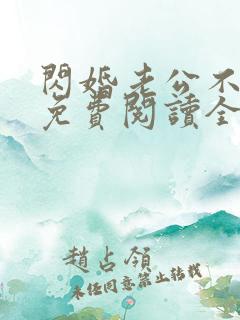 閃婚老公不
免費閱讀全
趙占領
未經同意禁止轉載